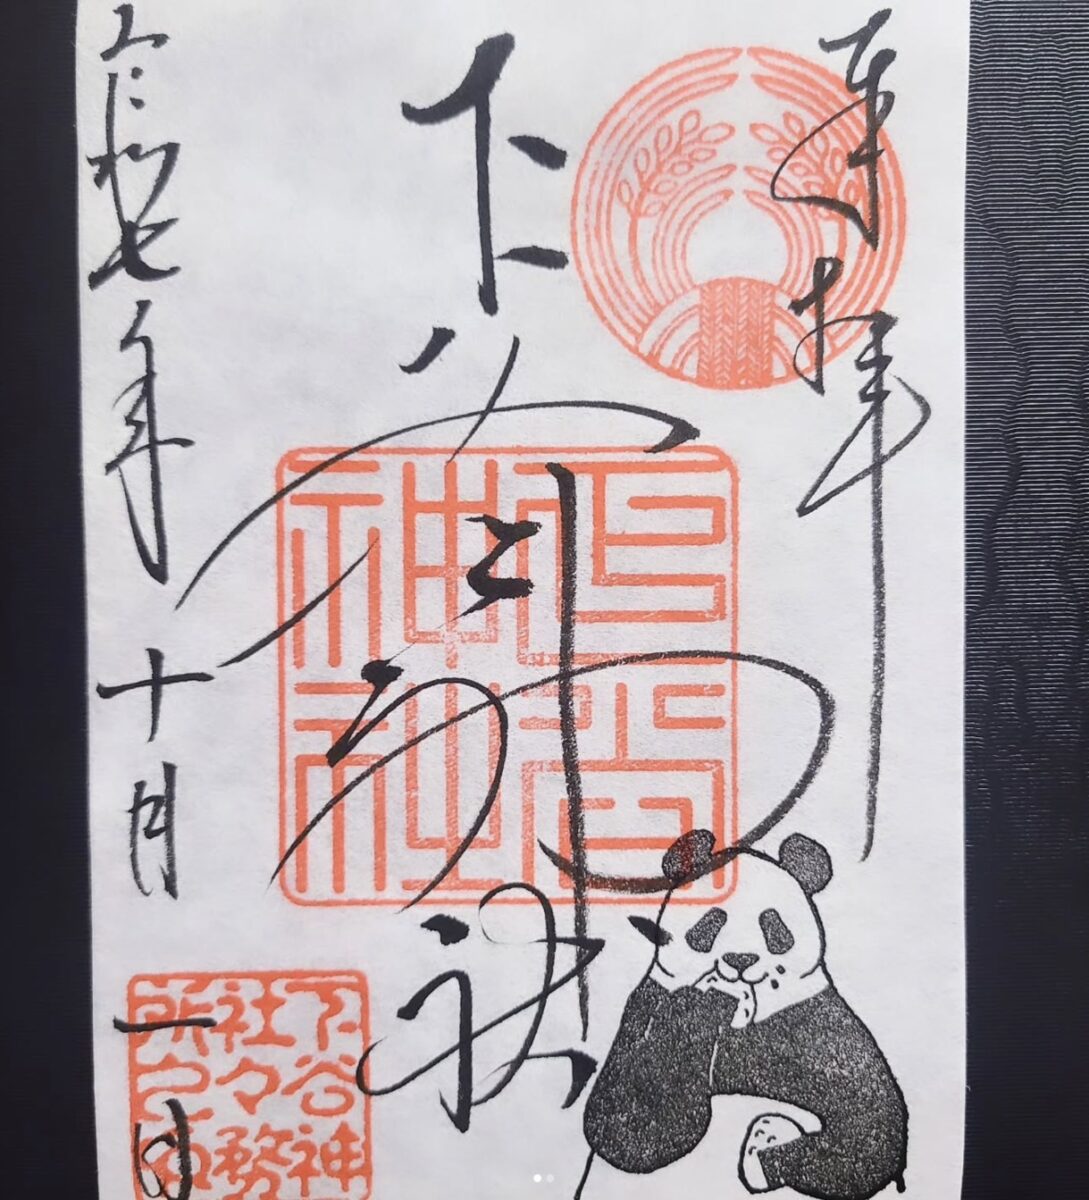 奉拝
下谷神社
令和七年十月一日
下谷神
社々務
所之印